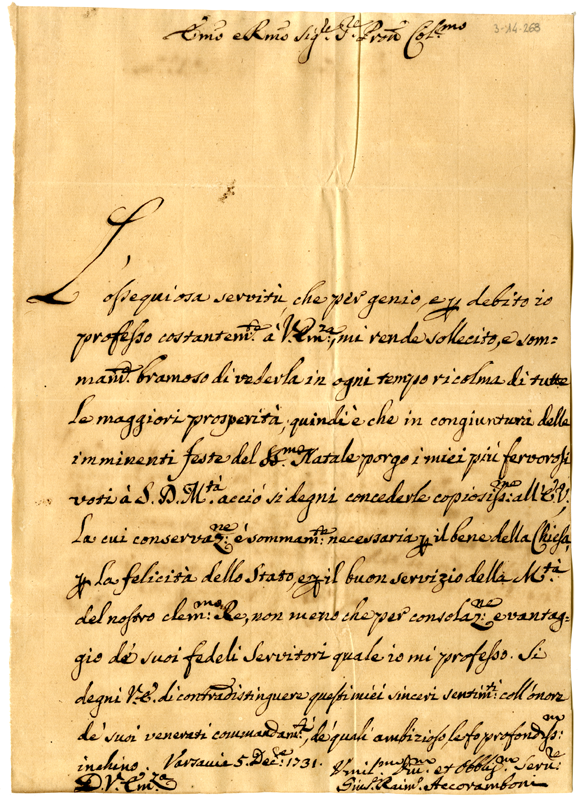 3-14-268
Emo e Rmo Sigre Pron Colmo
L'ossequiosa servitù che per genio, e p debito io
professo costantemte à V. Emza, mi rende sollecito, e som=
mamte bramoso di vederla in ogni tempo ricolma di tutte
le maggiori prosperità, quindi è che in congiuntura delle
imminenti feste del SSmo Natale porgo i miei più fervorosi
voti à S. D. Mtà acciò si degni concederle copiosissme all' E. V.,
la cui conservazne è sommamte necessaria p il bene della Chiesa,
p la felicità dello Stato, e p il buon servizio della Mtà
del nostro clemmo Re, non meno che per consolazne e vantag=
gio de' suoi fedeli Servitori quale io mi professo. Si
degni V. E. di contradistinguere questi miei sinceri sentimti coll'onore
de' suoi venerati commandamti, de' quali ambizioso, le fo profondissmo
inchino. Varsavia 5. Decre 1731.
D. V. Emza
Umilmo Divmo et Obbligmo Servre
Giul. Raim. Accoramboni